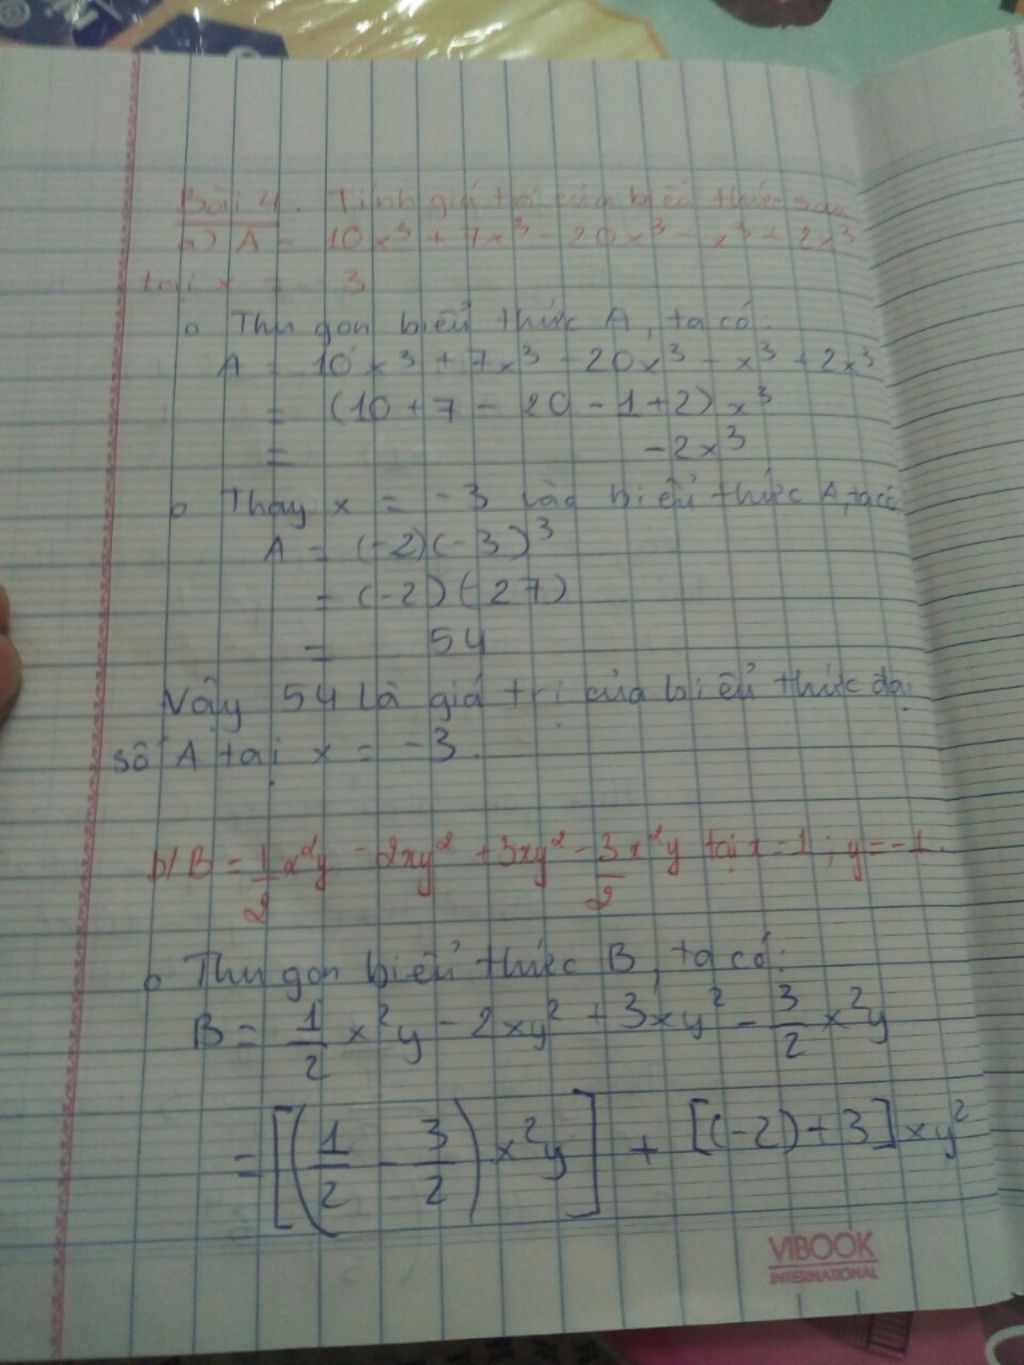 Bài 4. Tính giá trị của biểu thức sau
a) A = 10x³ + 7x³ - 20x³ - x³ + 2x³
tại x = -3
o Thu gọn biểu thức A, ta có:
A = 10x³ + 7x³ - 20x³ - x³ + 2x³
= (10 + 7 - 20 - 1 + 2) x³
= -2x³
o Thay x = -3 vào biểu thức A, ta có
A = (-2)(-3)³
= (-2)(-27)
= 54
Vậy 54 là giá trị của biểu thức đại
số A tại x = -3.
b/ B = 1/2 x²y - 2xy² + 3xy² - 3/2 x²y tại x = 1; y = -1.
o Thu gọn biểu thức B, ta có:
B = 1/2 x²y - 2xy² + 3xy² - 3/2 x²y
= [(1/2 - 3/2) x²y] + [(-2) + 3] xy²
VIBOOK
INTERNATIONAL